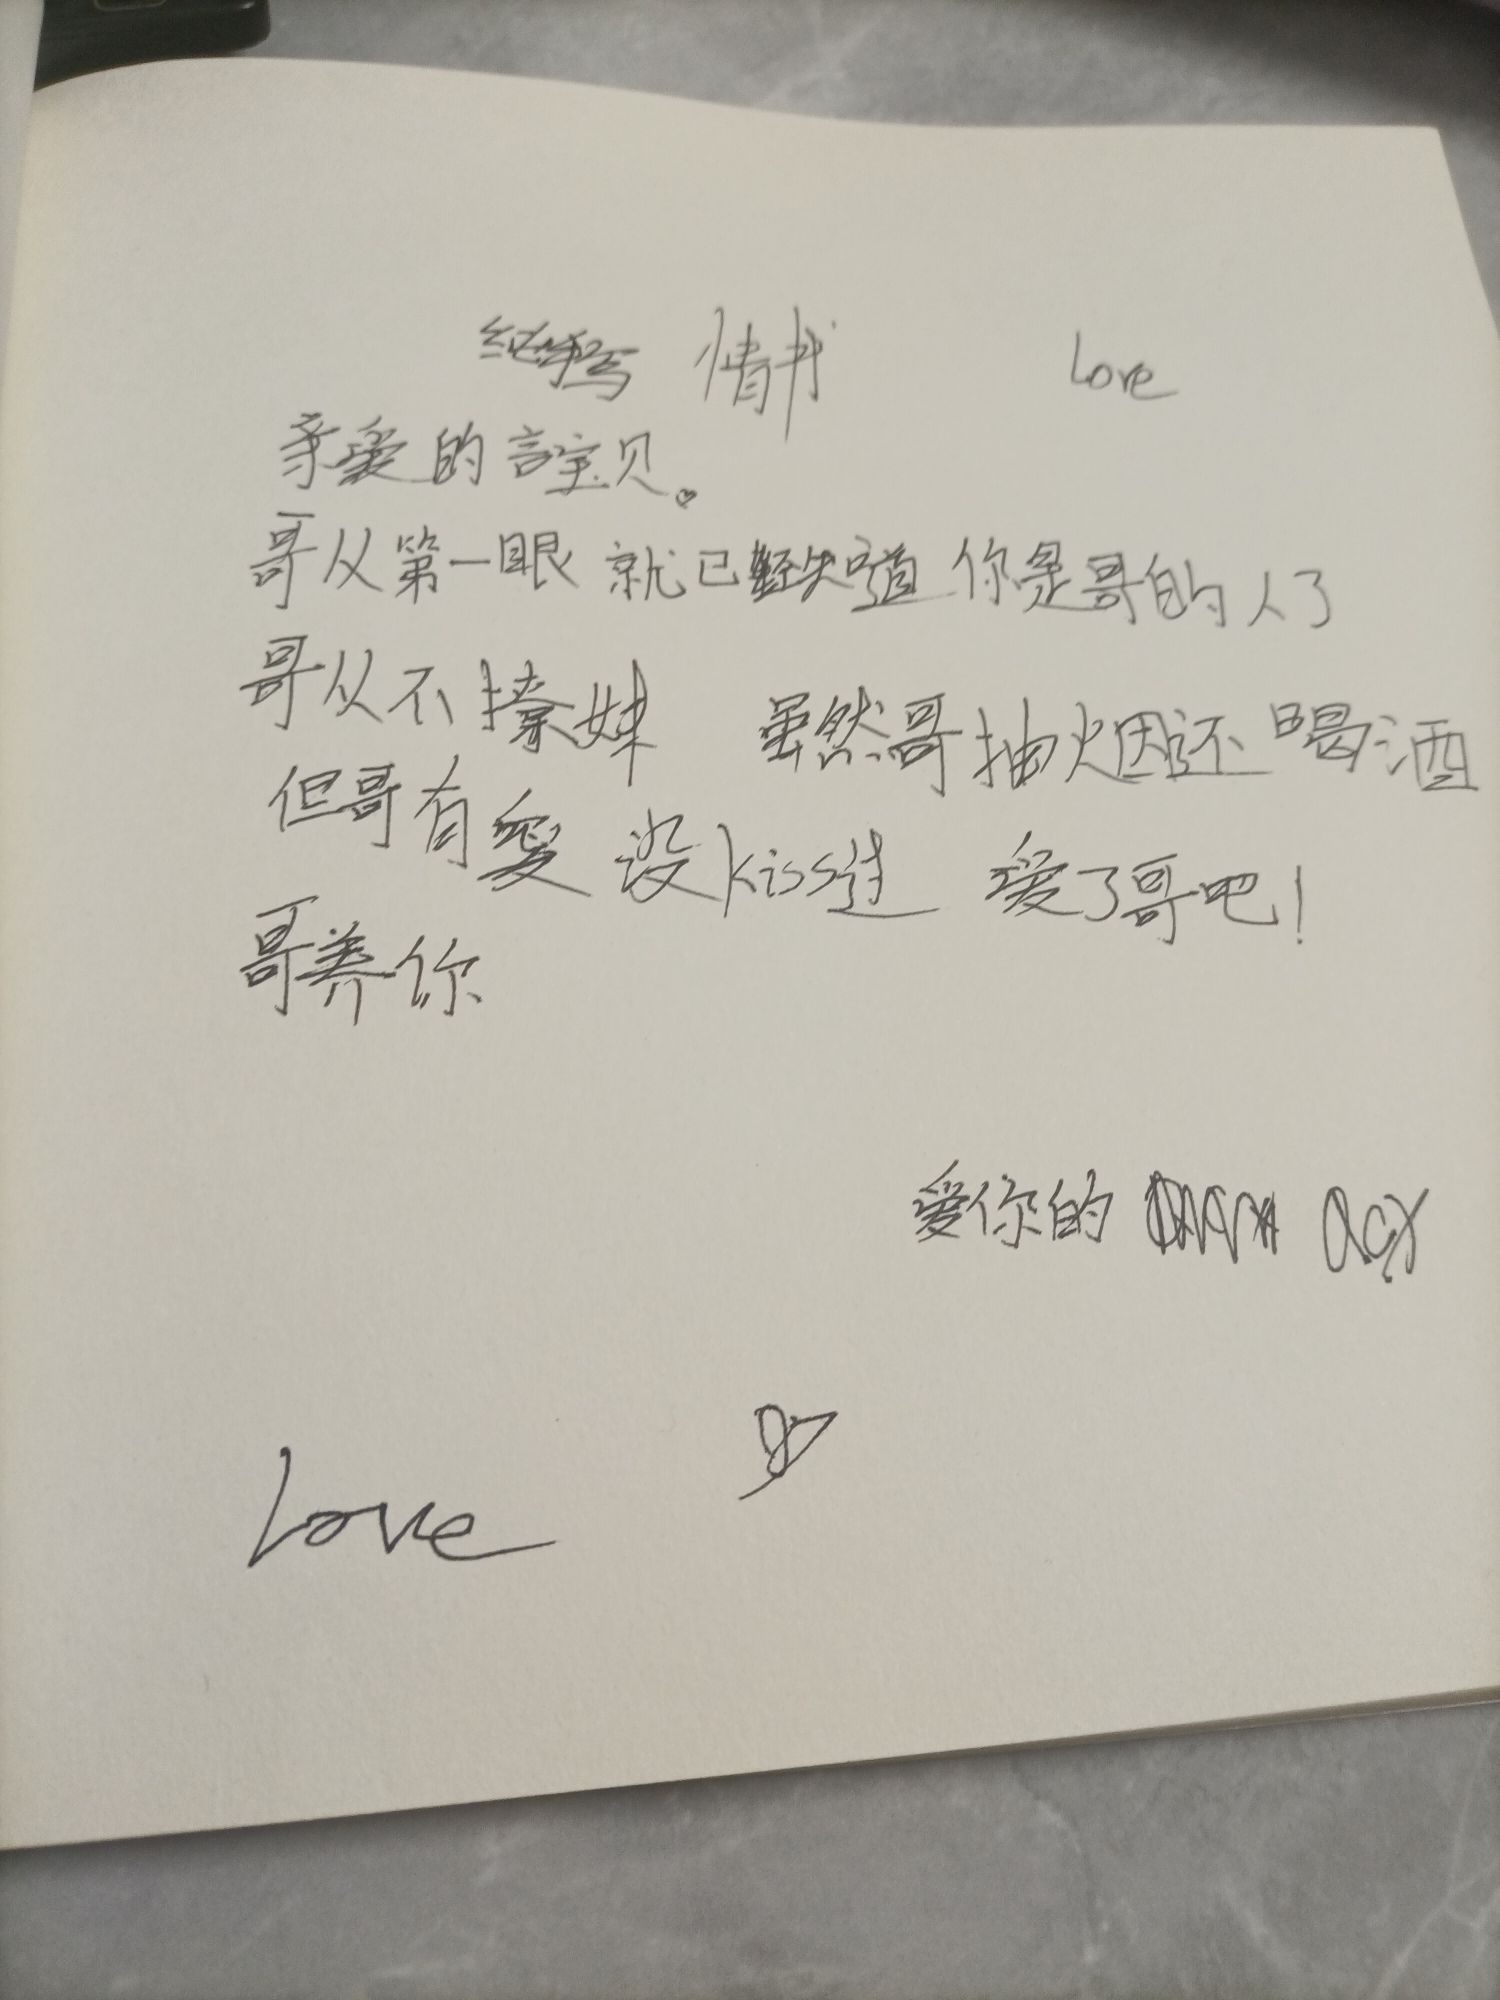 纯手写 情书 Love
亲爱的言宝贝。
哥从第一眼就已经知道你是哥的人了
哥从不撩妹 虽然哥抽烟还喝酒
但哥有爱 没kiss过 爱了哥吧!
哥养你
爱你的
Love